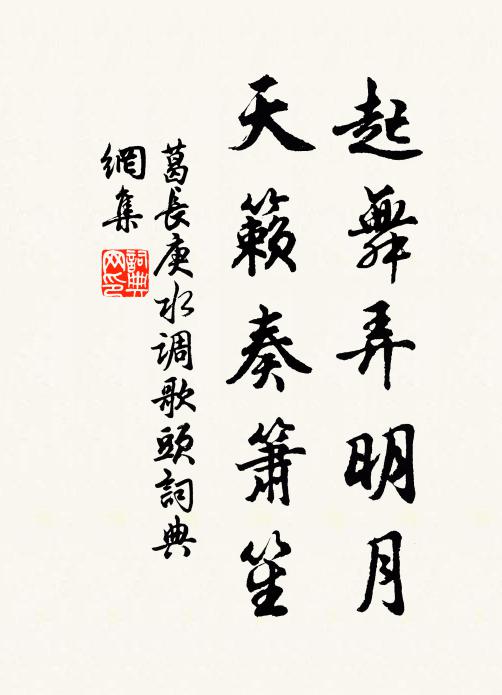 起舞弄明月
天籟奏簫笙
葛長庚水调歌頭詞典
網集
詞典
网印